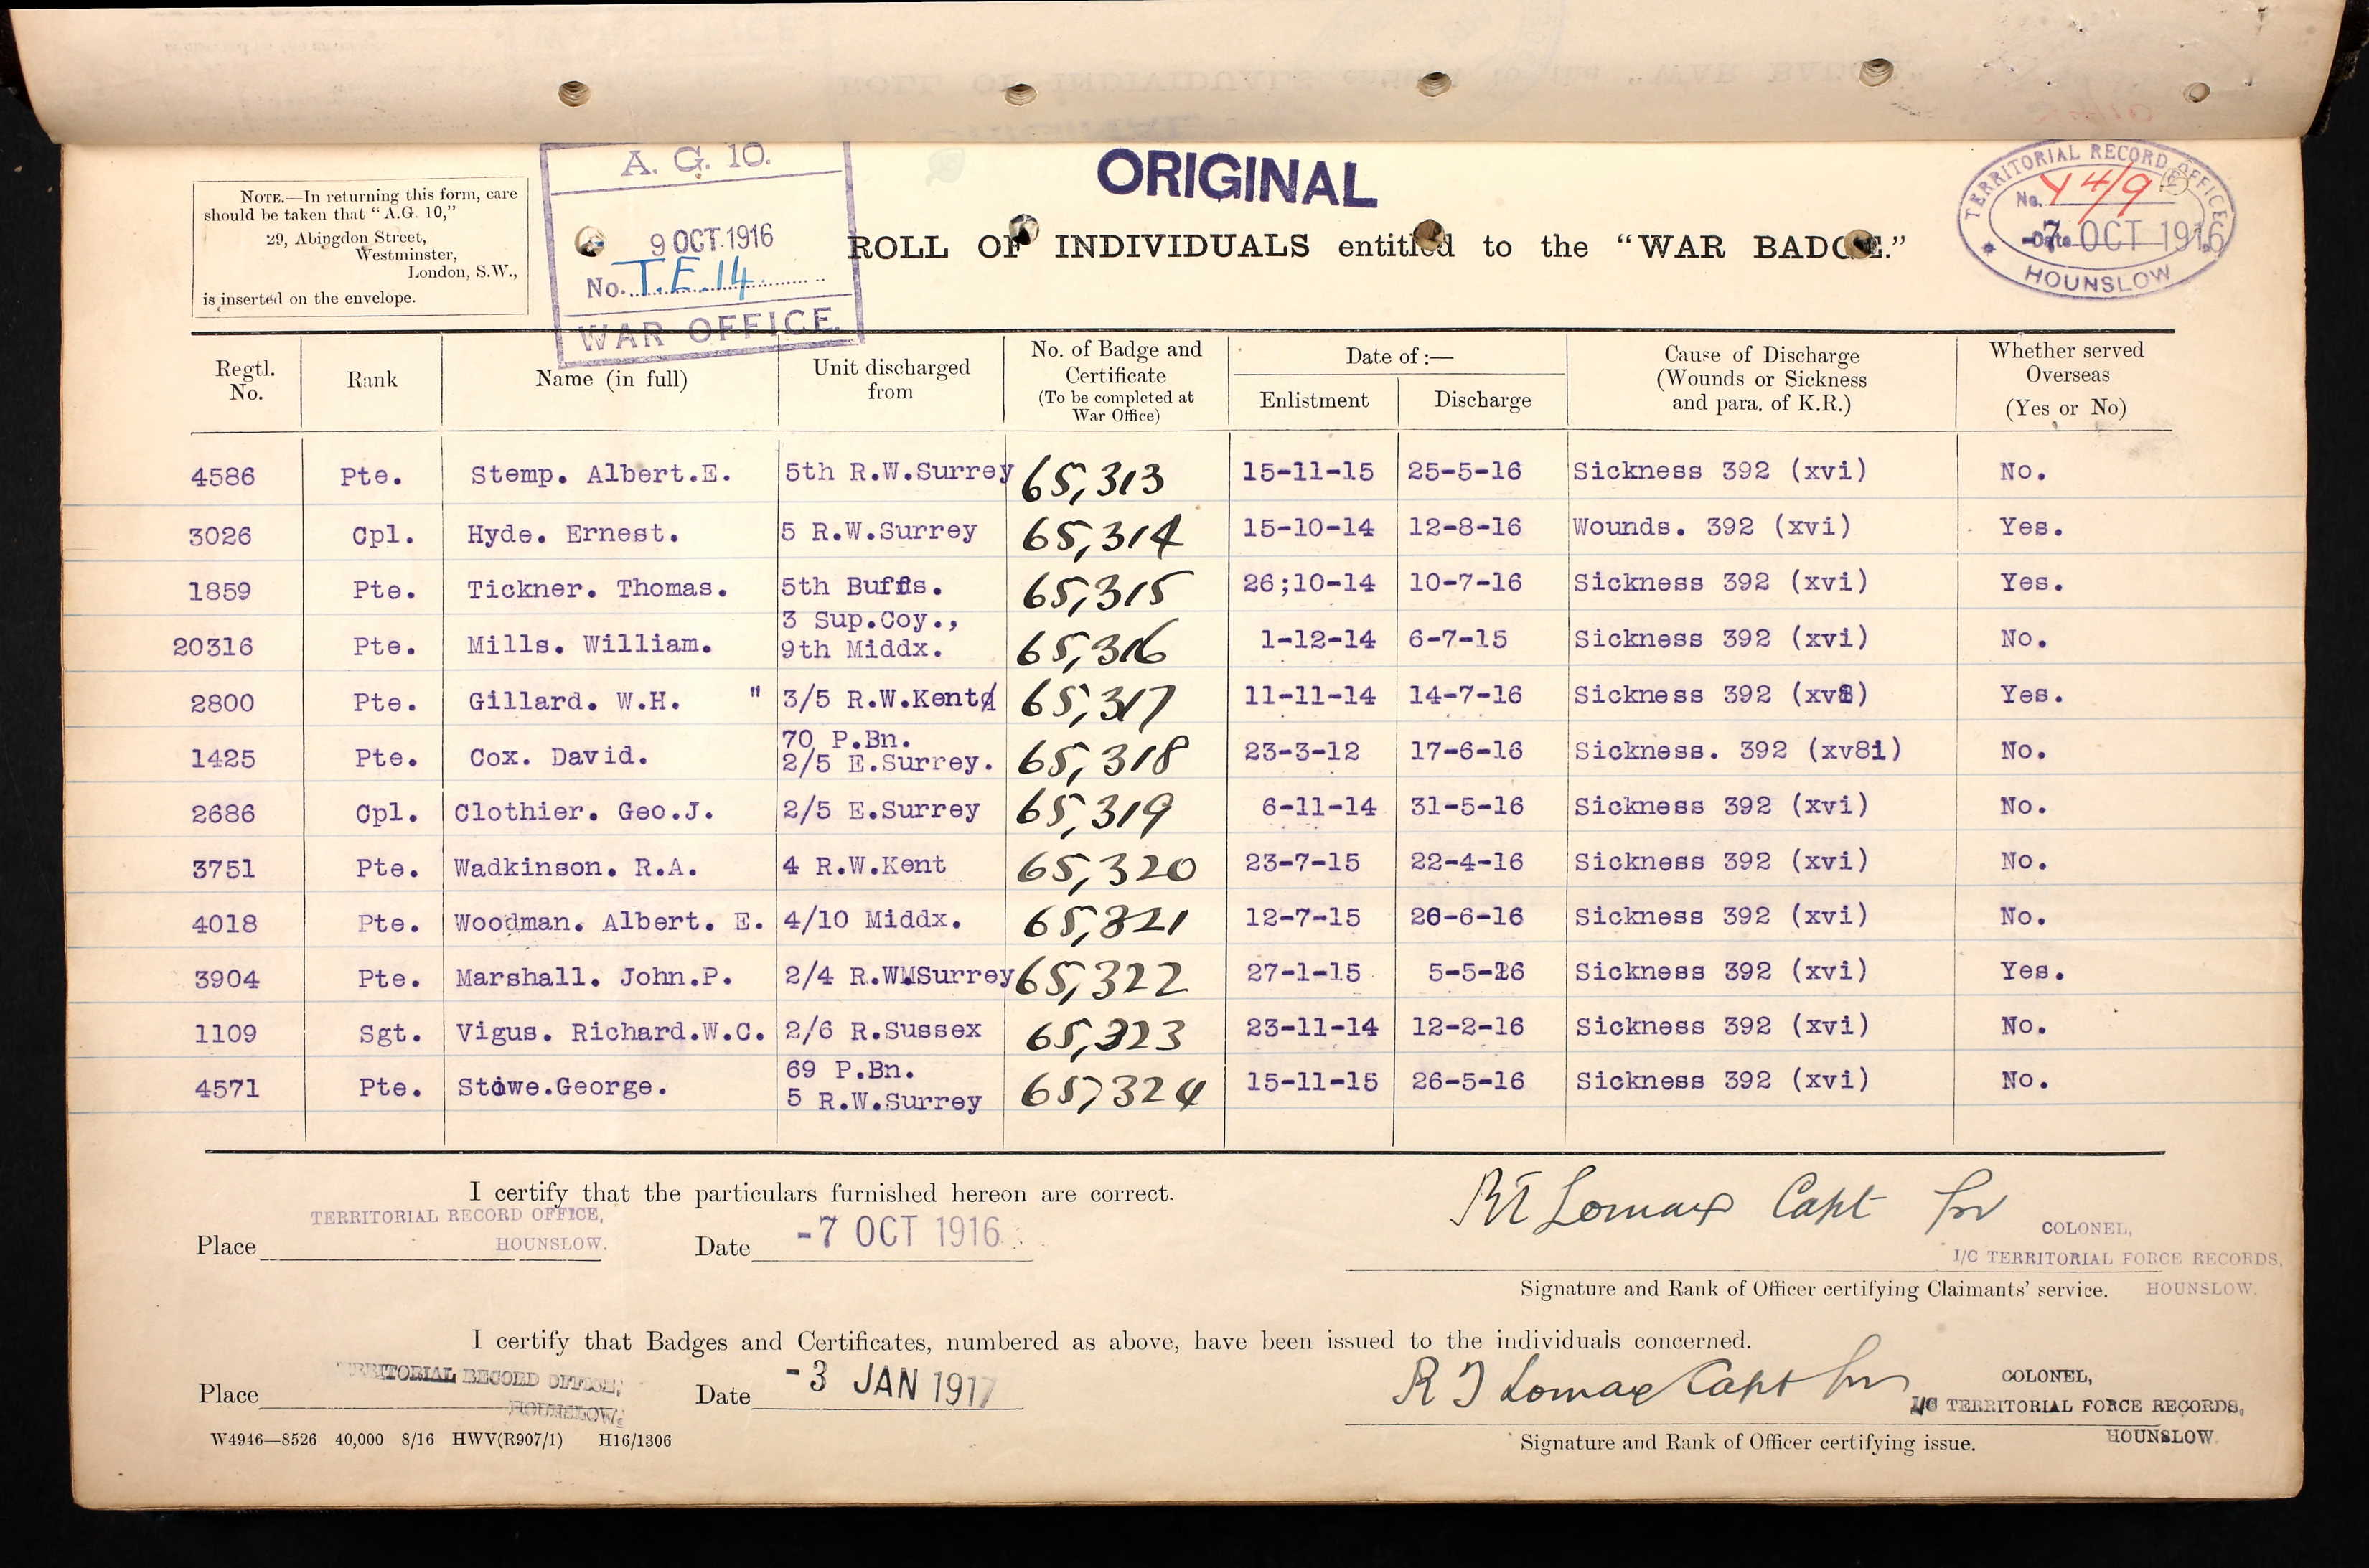 NOTE.—In returning this form, care
should be taken that "A.G. 10,"
29, Abingdon Street,
Westminster,
London, S.W.,
is inserted on the envelope.
A. G. 10.
9 OCT 1916
No. T.F. 14
WAR OFFICE
ORIGINAL
ROLL OF INDIVIDUALS entitled to the "WAR BADGE."
TERRITORIAL RECORD OFFICE
No. Y4/9
Date 7 OCT 1916
HOUNSLOW
Regtl. No. Rank Name (in full) Unit discharged from No. of Badge and Certificate (To be completed at War Office) Date of:— Enlistment Discharge Cause of Discharge (Wounds or Sickness and para. of K.R.) Whether served Overseas (Yes or No)
4586 Pte. Stemp. Albert.E. 5th R.W.Surrey 65,313 15-11-15 25-5-16 Sickness 392 (xvi) No.
3026 Cpl. Hyde. Ernest. 5 R.W.Surrey 65,314 15-10-14 12-8-16 Wounds. 392 (xvi) Yes.
1859 Pte. Tickner. Thomas. 5th Buffs. 65,315 26;10-14 10-7-16 Sickness 392 (xvi) Yes.
3 Sup.Coy.,
20316 Pte. Mills. William. 9th Middx. 65,316 1-12-14 6-7-15 Sickness 392 (xvi) No.
2800 Pte. Gillard. W.H. " 3/5 R.W.Kent 65,317 11-11-14 14-7-16 Sickness 392 Yes.
70 P.Bn.
1425 Pte. Cox. David. 2/5 E.Surrey. 65,318 23-3-12 17-6-16 Sickness. 392 (xv8i) No.
2686 Cpl. Clothier. Geo.J. 2/5 E.Surrey 65,319 6-11-14 31-5-16 Sickness 392 (xvi) No.
3751 Pte. Wadkinson. R.A. 4 R.W.Kent 65,320 23-7-15 22-4-16 Sickness 392 (xvi) No.
4018 Pte. Woodman. Albert. E. 4/10 Middx. 65,321 12-7-15 20-6-16 Sickness 392 (xvi) No.
3904 Pte. Marshall. John.P. 2/4 R.WMSurrey 65,322 27-1-15 5-5-16 Sickness 392 (xvi) Yes.
1109 Sgt. Vigus. Richard.W.C. 2/6 R.Sussex 65,323 23-11-14 12-2-16 Sickness 392 (xvi) No.
69 P.Bn.
4571 Pte. Stowe.George. 5 R.W.Surrey 65,324 15-11-15 26-5-16 Sickness 392 (xvi) No.
I certify that the particulars furnished hereon are correct.
Place TERRITORIAL RECORD OFFICE, HOUNSLOW. Date -7 OCT 1916
RT Lomax Capt for
COLONEL,
I/C TERRITORIAL FORCE RECORDS,
HOUNSLOW.
Signature and Rank of Officer certifying Claimants' service.
I certify that Badges and Certificates, numbered as above, have been issued to the individuals concerned.
Place TERRITORIAL RECORD OFFICE, HOUNSLOW. Date -3 JAN 1917
R T Lomax Capt for
COLONEL,
I/C TERRITORIAL FORCE RECORDS,
HOUNSLOW
Signature and Rank of Officer certifying issue.
W4946—8526 40,000 8/16 HWV(R907/1) H16/1306